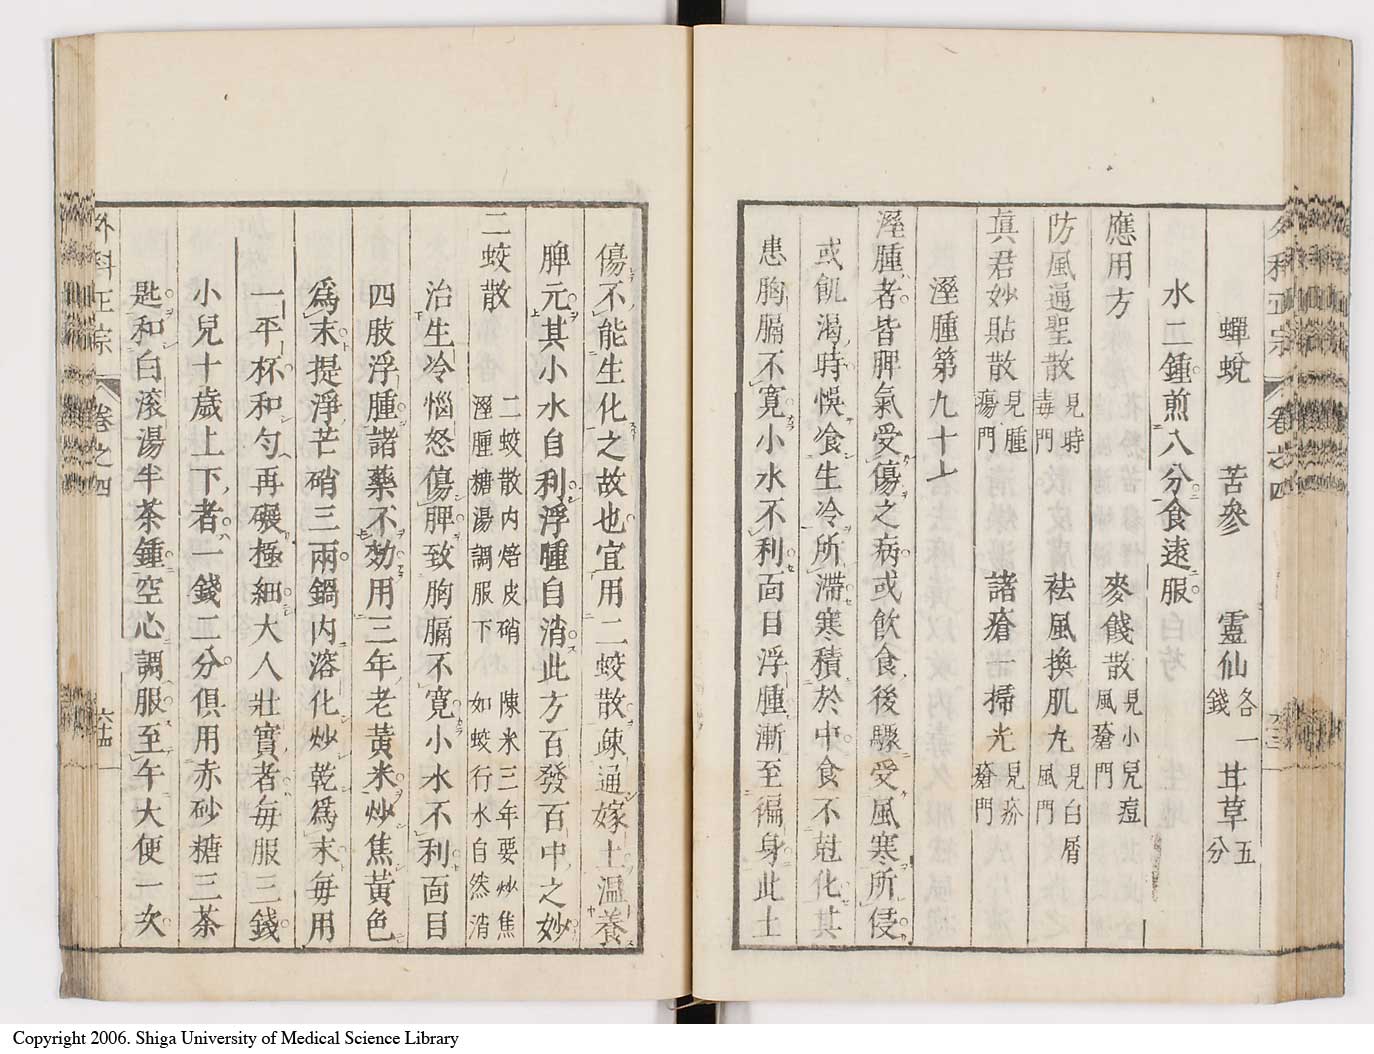 外科正宗 卷之四 六十三
蟬蛻 苦參 靈仙各一錢 甘草五分
水二鍾煎八分食遠服
應用方 麥餞散見小兒痘風瘡門
防風通聖散見時毒門 祛風換肌丸見白屑風門
眞君妙貼散見腫瘍門 諸瘡一掃光見疥瘡門
溼腫第九十七
溼腫者皆脾氣受傷之病或飲食後驟受風寒所侵
或飢渴時悞飡生冷所滯寒積於中食不尅化其
患胸膈不寬小水不利面目浮腫漸至徧身此土
傷不能生化之故也宜用二蛟散疎通嫁土温養
脾元其小水自利浮腫自消此方百發百中之妙
二蛟散 二蛟散内焙皮硝 陳米三年要炒焦
溼腫糖湯調服下 如蛟行水自然消
治生冷惱怒傷脾致胸膈不寬小水不利面目
四肢浮腫諸藥不効用三年老黃米炒焦黃色
爲末提淨芒硝三兩鍋内溶化炒乾爲末每用
一平杯和勻再碾極細大人壯實者每服三錢
小兒十歲上下者一錢二分俱用赤砂糖三茶
匙和白滾湯半茶鍾空心調服至午大便一次
外科正宗 卷之四 六十四
Copyright 2006. Shiga University of Medical Science Library